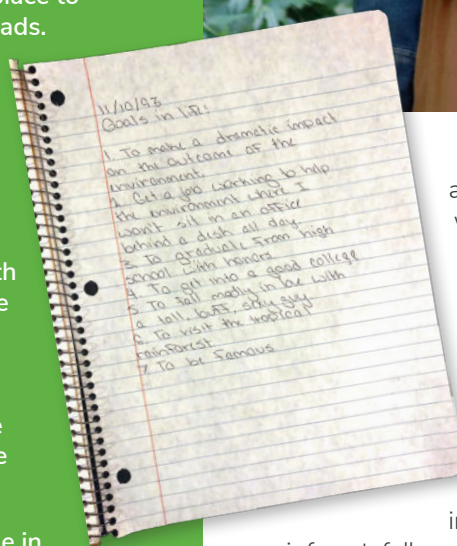 place to
ads.
11/10/93
Goals in life:
1. To make a dramatic impact
on the outcome of the
environment.
2. Get a job working to help
the environment where I
won't sit in an office
behind a desk all day.
3. To graduate from high
school with honors
4. To get into a good college
5. To fall madly in love with
a tall, buff, sexy guy
6. To visit the tropical
rainforest
7. To be famous
th
e
e
e
e in
a
v
in